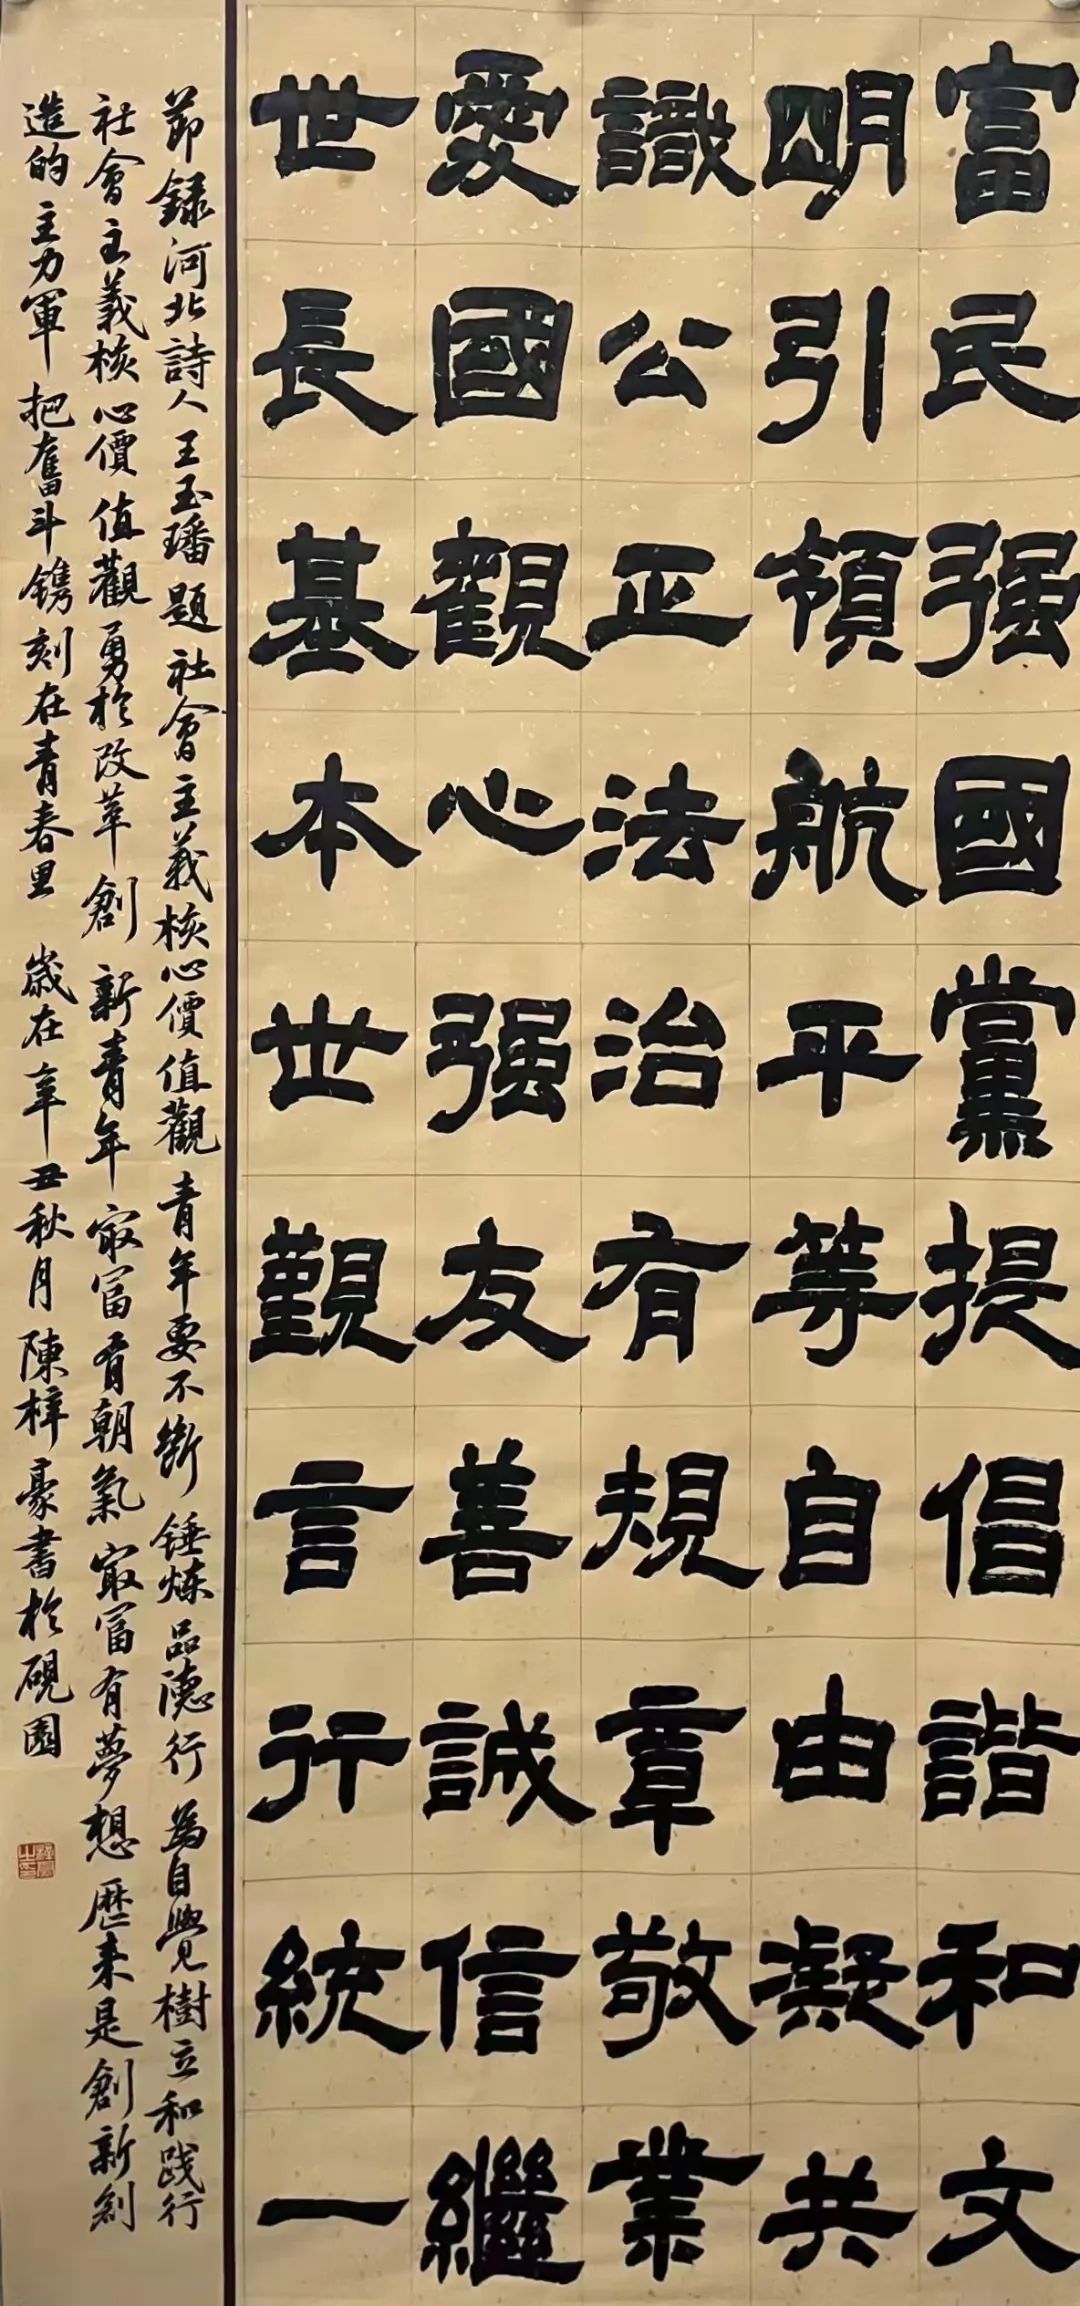 富民强國黨提倡諧和文
明引領航平等自由凝共
識公正法治有規章敬業
愛國觀心强友善誠信繼
世長基本世觀言行統一
節録河北詩人王玉璠題社會主義核心價值觀青年要不斷錘炼品德行為自覺樹立和践行
社會主義核心價值觀勇於改革創新青年最富有朝氣最富有夢想歷来是創新創
造的主力軍把奮斗鐫刻在青春里歲在辛丑秋月陳梓豪書於硯園